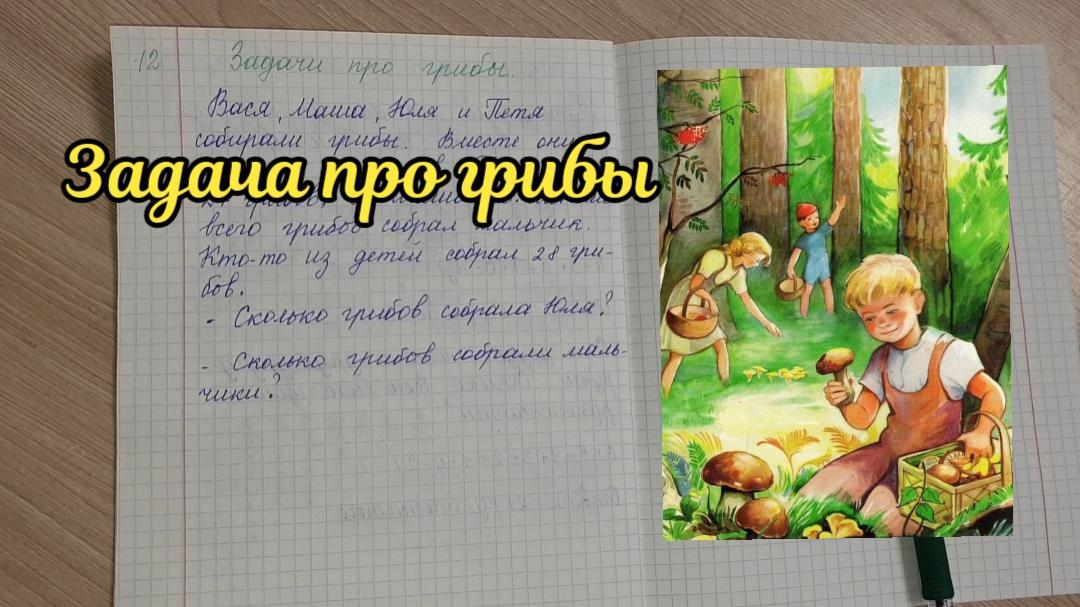 12 Задачи про грибы.
Вася, Маша, Юля и Петя
собирали грибы. Вместе они
Задача про грибы
всего грибов собрал мальчик.
Кто-то из детей собрал 28 гри-
бов.
- Сколько грибов собрала Юля?
- Сколько грибов собрали маль-
чики?